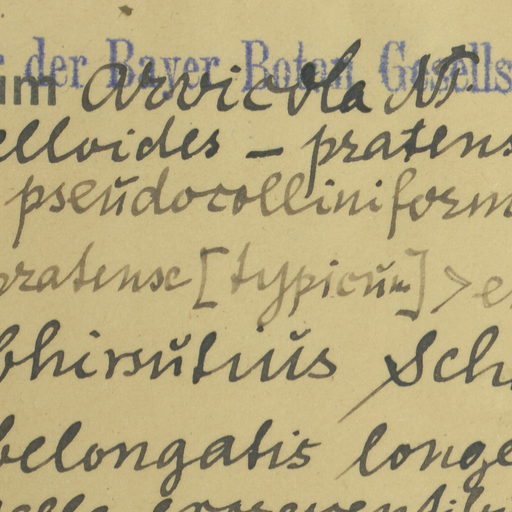 der Bayer Boten Gesells
um arvicola NP.
elloides – pratens
pseudocolliniform
pratense [typicum] > e
bhirsutius Sch
belongatis longe